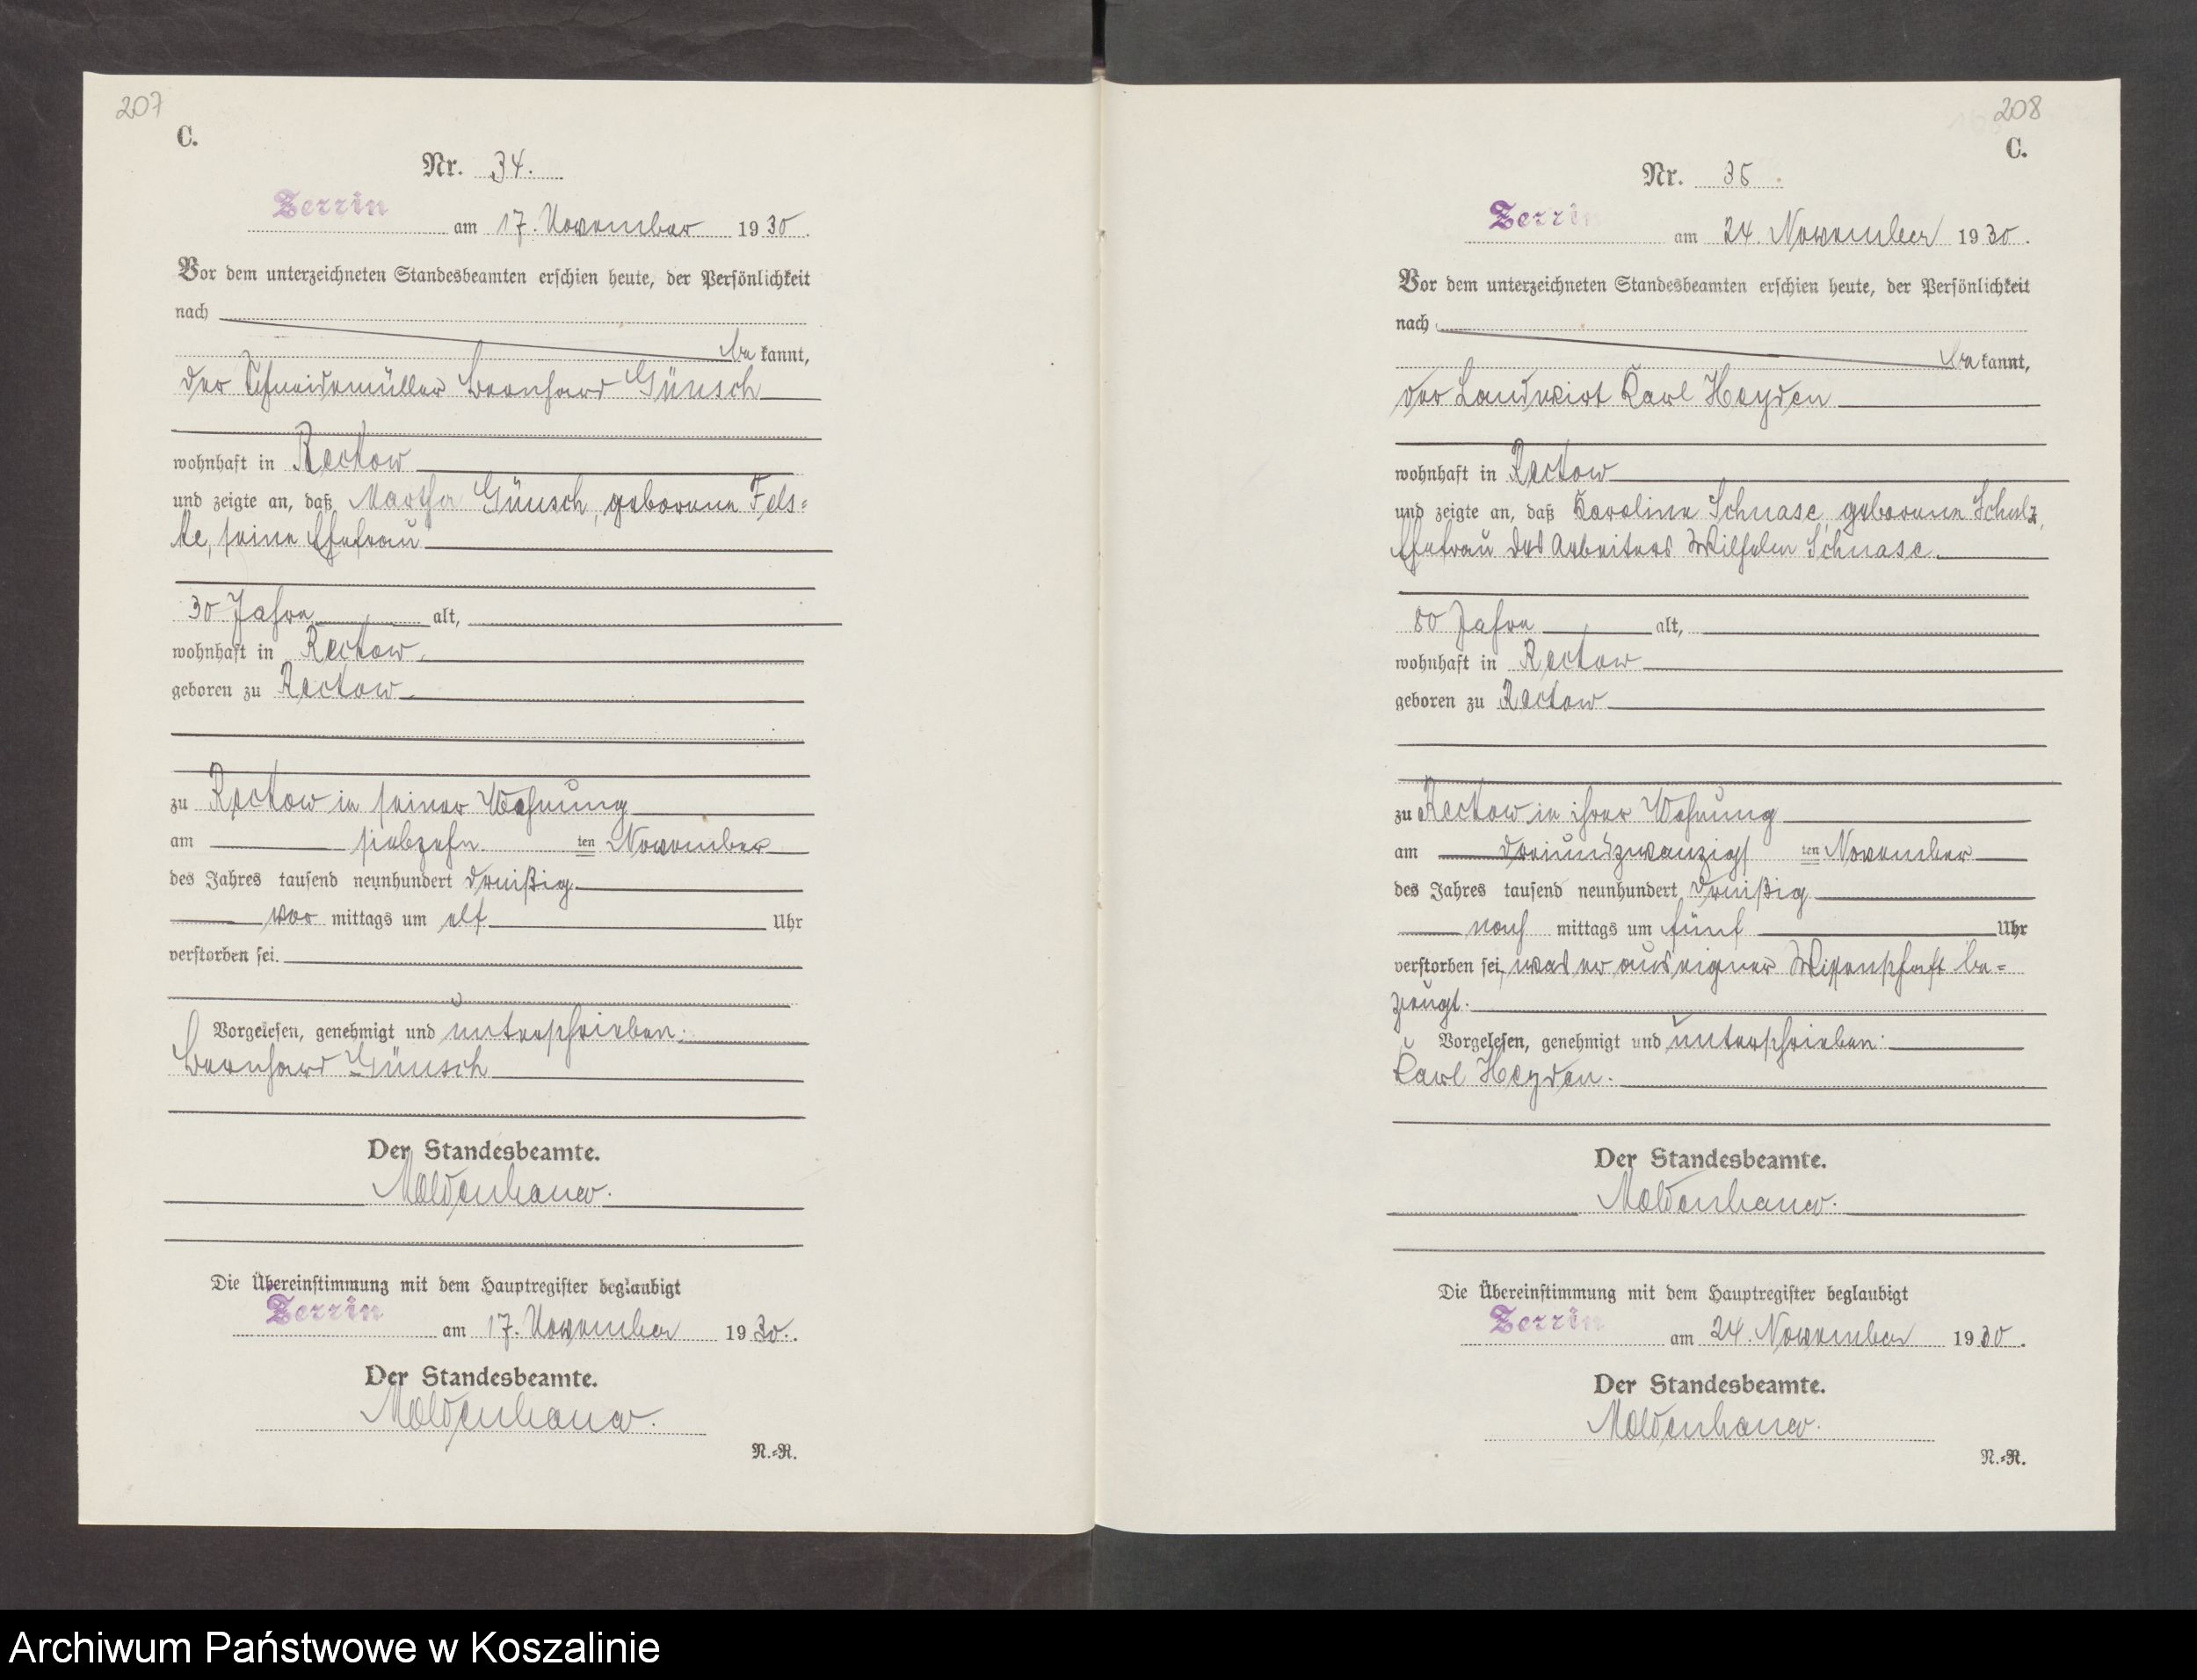 207
C.
Nr. 34.
Zerrin am 17. November 1930.
Vor dem unterzeichneten Standesbeamten erschien heute, der Persönlichkeit
nach
be kannt,
der Schneidemüller Bernhard Günsch
wohnhaft in Reckow
und zeigte an, daß Martha Günsch, geborene Fels=
ke, seine Ehefrau
30 Jahre alt,
wohnhaft in Reckow
geboren zu Reckow
zu Reckow in seiner Wohnung
am siebzehn ten November
des Jahres tausend neunhundert dreißig
vor mittags um elf Uhr
verstorben sei.
Vorgelesen, genehmigt und unterschrieben.
Bernhard Günsch
Der Standesbeamte.
Moldenhauer.
Die Übereinstimmung mit dem Hauptregister beglaubigt
Zerrin am 17. November 1930.
Der Standesbeamte.
Moldenhauer.
N.=R.
208
C.
Nr. 35
Zerrin am 24. November 1930.
Vor dem unterzeichneten Standesbeamten erschien heute, der Persönlichkeit
nach
be kannt,
der Landwirt Karl Heyden
wohnhaft in Reckow
und zeigte an, daß Karoline Schnase geborene Schulz,
Ehefrau des Arbeiters Wilhelm Schnase
80 Jahre alt,
wohnhaft in Reckow
geboren zu Reckow
zu Reckow in ihrer Wohnung
am dreiundzwanzigs ten November
des Jahres tausend neunhundert dreißig
nach mittags um fünf Uhr
verstorben sei, was er aus eigner Wissenschaft be=
zeugt.
Vorgelesen, genehmigt und unterschrieben:
Karl Heyden.
Der Standesbeamte.
Moldenhauer.
Die Übereinstimmung mit dem Hauptregister beglaubigt
Zerrin am 24. November 1930.
Der Standesbeamte.
Moldenhauer.
N.=R.
Archiwum Państwowe w Koszalinie